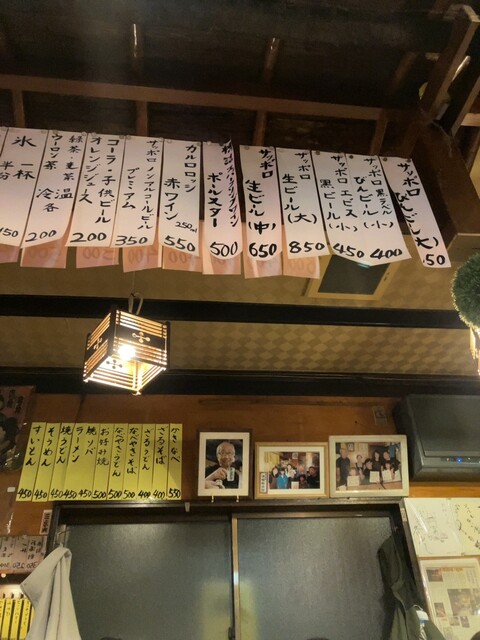 サッポロ びんビール(大) 50
サッポロ 黒ラベル びんビール(小) 400
サッポロ エビス 黒ビール(小) 450
サッポロ 生ビール(大) 850
サッポロ 生ビール(中) 650
ポールスター 500
カルロロッジ 赤ワイン 250ml 550
サッポロノンアルコールビール プレミアム 350
コーラ・子供ビール オレンジジュース 200
緑茶・玄米茶 温 ウーロン茶 冷 各 200
氷 一杯 半分 150
かきなべ 550
ざるそば 400
ざるうどん 400
なべやきそば 500
なべやきうどん 500
お好み焼 500
焼ソバ 450
ラーメン 450
焼うどん 450
そうめん 450
すいとん 450